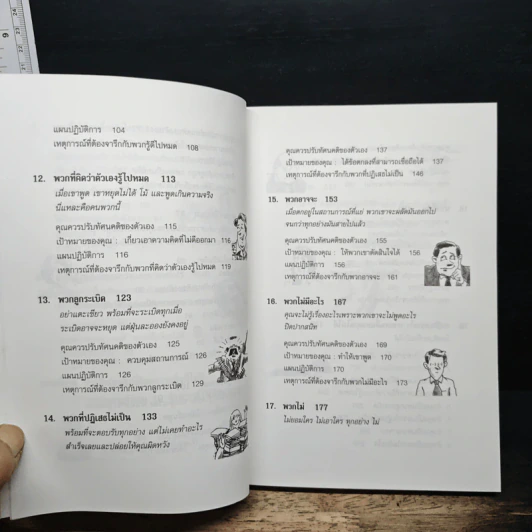 แผนปฏิบัติการ 104
เหตุการณ์ที่ต้องจารึกกับพวกรู้ดีไปหมด 108
12. พวกที่คิดว่าตัวเองรู้ไปหมด 113
เมื่อเขาพูด เขาหยุดไม่ได้ โม้ และพูดเกินความจริง
นี่แหละคือคนพวกนี้
คุณควรปรับทัศนคติของตัวเอง 115
เป้าหมายของคุณ : เกี่ยวเอาความคิดที่ไม่ดีออกมา 116
แผนปฏิบัติการ 116
เหตุการณ์ที่ต้องจารึกกับพวกที่คิดว่าตัวเองรู้ไปหมด 119
13. พวกลูกระเบิด 123
อย่าแตะเชียว พร้อมที่จะระเบิดทุกเมื่อ
ระเบิดอาจจะหยุด แต่ฝุ่นละอองยังคงอยู่
คุณควรปรับทัศนคติของตัวเอง 125
เป้าหมายของคุณ : ควบคุมสถานการณ์ 126
แผนปฏิบัติการ 126
เหตุการณ์ที่ต้องจารึกกับพวกลูกระเบิด 129
14. พวกที่ปฏิเสธไม่เป็น 133
พร้อมที่จะตอบรับทุกอย่าง แต่ไม่เคยทำอะไร
สำเร็จเลยและปล่อยให้คุณผิดหวัง
คุณควรปรับทัศนคติของตัวเอง 137
เป้าหมายของคุณ : ได้ข้อตกลงที่สามารถเชื่อถือได้ 137
เหตุการณ์ที่ต้องจารึกกับพวกที่ปฏิเสธไม่เป็น 146
15. พวกอาจจะ 153
เมื่อตกอยู่ในสถานการณ์ที่แย่ พวกเขาจะผลัดมันออกไป
จนกว่าทุกอย่างมันสายไปแล้ว
คุณควรปรับทัศนคติของตัวเอง 155
เป้าหมายของคุณ : ให้พวกเขาตัดสินใจได้ 156
แผนปฏิบัติการ 156
เหตุการณ์ที่ต้องจารึกกับพวกอาจจะ 161
16. พวกไม่มีอะไร 167
คุณจะไม่รู้เรื่องอะไรเพราะพวกเขาจะไม่พูดอะไร
ปิดปากสนิท
คุณควรปรับทัศนคติของตัวเอง 169
เป้าหมายของคุณ : ทำให้เขาพูด 170
แผนปฏิบัติการ 170
เหตุการณ์ที่ต้องจารึกกับพวกไม่มีอะไร 173
17. พวกไม่ 177
ไม่ยอมใคร ไม่เอาใคร ทุกอย่าง ไม่